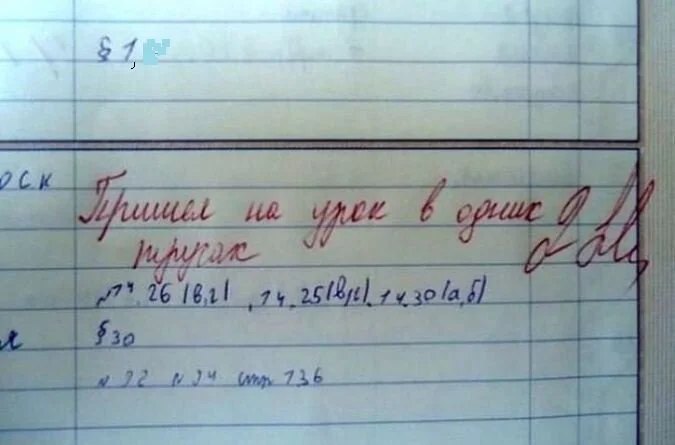 § 1,
оск
Пришел на урок в одних 2
трусах
№14.26 (в,г), 14.25(в,г), 14.30(а,б)
я
§ 30
№ 92 № 94 стр 136